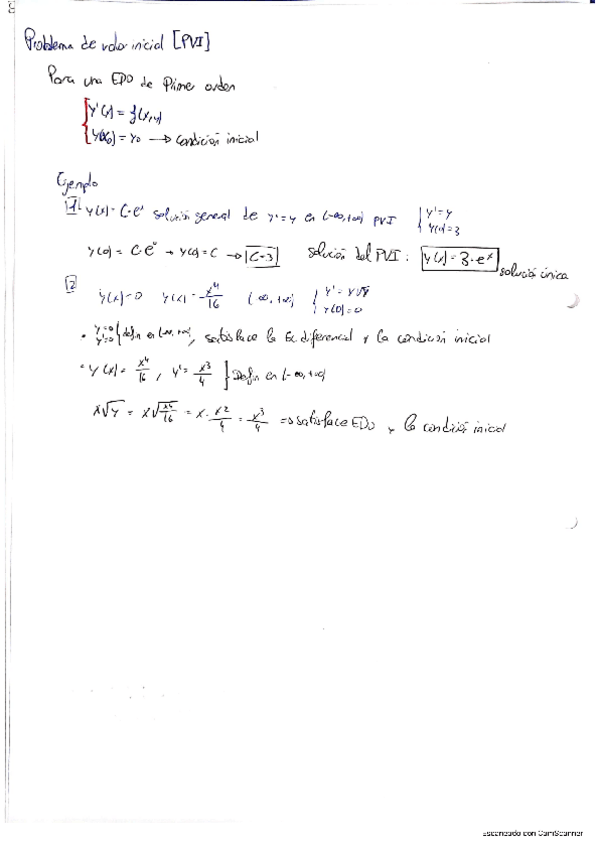 Problema de valor inicial [PVI]
Para una EDO de Primer orden
y'(x) = f(x,y)
y(x0) = y0 → Condición inicial
Ejemplo
1 y(x) = C·e^x solución general de y' = y en (-∞,+∞) PVI { y' = y
y(0) = 3
y(0) = C·e^0 → y(0) = C → C=3 solución del PVI: y(x) = 3·e^x
solución única
2
y(x)=0 y(x) = x^4/16 (-∞,+∞) { y' = x√y
y(0)=0
• y=0
y'=0 } defin en (-∞,+∞), satisface la Ec. diferencial y la condición inicial
• y(x) = x^4/16, y' = x^3/4 } Defin en (-∞,+∞)
x√y = x√(x^4/16) = x·x^2/4 = x^3/4 ⇒ satisface EDO y la condición inicial
Escaneado con CamScanner